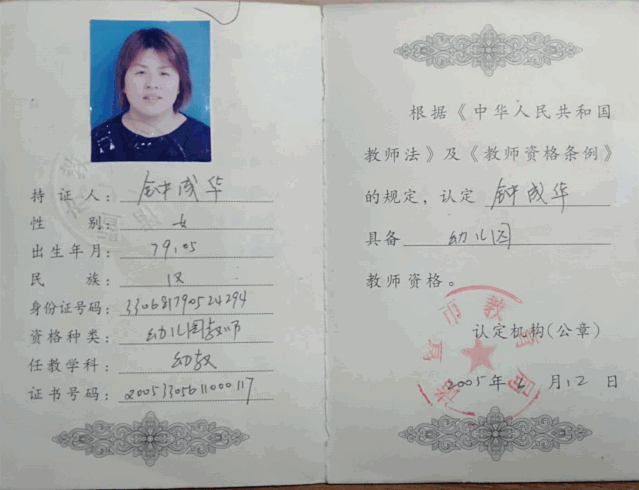 持证人：钟成华
性别：女
出生年月：79.05
民族：汉
身份证号码：330681790524294
资格种类：幼儿园教师
任教学科：幼教
证书号码：20053305611000117
根据《中华人民共和国
教师法》及《教师资格条例》
的规定，认定 钟成华
具备 幼儿园
教师资格。
认定机构(公章)
2005年6月12日
市教育局